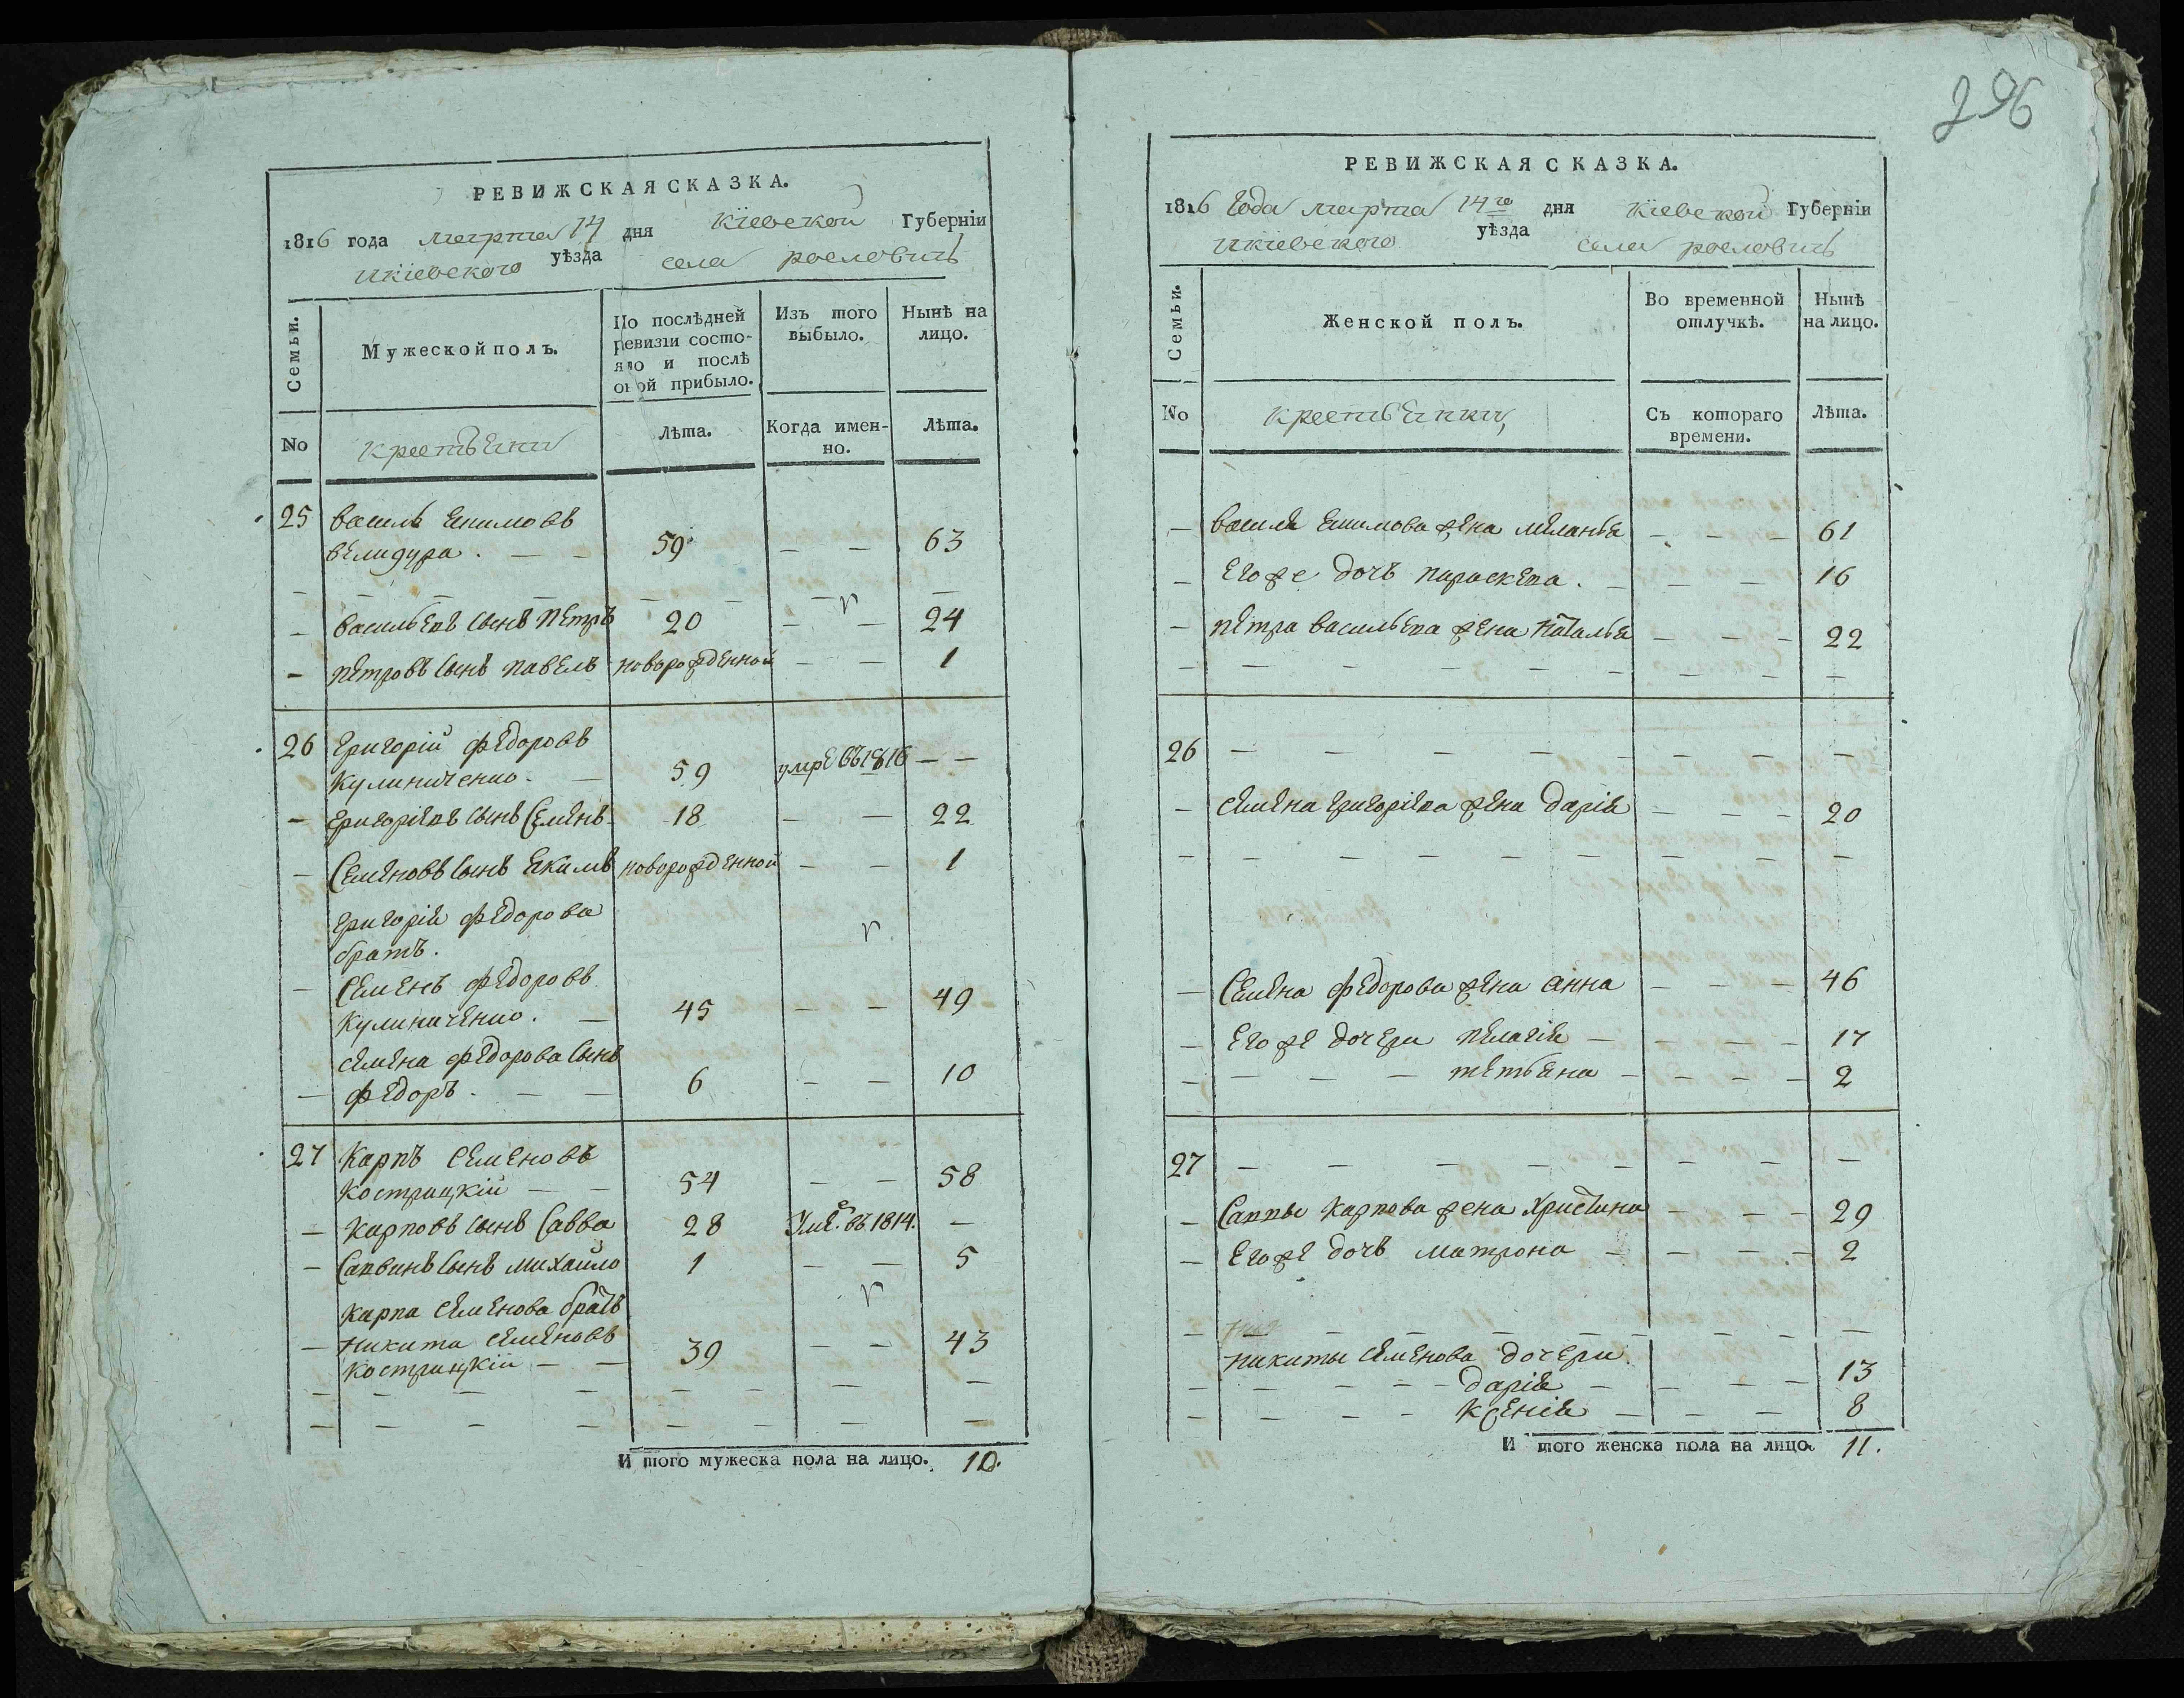 296
РЕВИЖСКАЯ СКАЗКА.
1816 года марта 14 дня Кіевской Губерніи
Икіевского уѣзда села рословичь
Семьи.
Мужеской полъ.
По послѣдней ревизіи состояло и послѣ оной прибыло.
Изъ того выбыло.
Нынѣ на лицо.
No
крестьяни
Лѣта.
Когда именно.
Лѣта.
25 василь Екимовъ
59 — — 63
васильевъ сынъ Петръ 20 — — 24
петровъ сынъ павелъ новорожденной — — 1
26 григорій федоровъ
Кулиниченко. — 59 умре въ 1816 — —
григоріевъ сынъ Семенъ 18 — — 22
Семеновъ сынъ Екимъ новорожденной — — 1
григорія федорова
братъ.
Семенъ федоровъ
Кулиниченко. — 45 — — 49
семена федорова сынъ
федоръ. — — 6 — — 10
27 Карпъ Семеновъ
Кострицкій — — 54 — — 58
карповъ сынъ Савва 28 Уме. въ 1814. —
Саввинъ сынъ михайло 1 — — 5
карпа семенова братъ
никита семеновъ
кострицкій — — 39 — — 43
И того мужеска пола на лицо. 10.
РЕВИЖСКАЯ СКАЗКА.
1816 года марта 14го дня Кіевской Губерніи
Икіевского уѣзда села рословичь
Семьи.
Женской полъ.
Во временной отлучкѣ.
Нынѣ на лицо.
No
крестьянки,
Съ котораго времени.
Лѣта.
— василя Екимова жена меланья — — — 61
— Его же дочь параскева. — — — 16
— петра васильева жена наталья — — — 22
26 — — — — — — — —
— семена григоріева жена дарія — — — 20
— Семена федорова жена анна — — — 46
— Его же дочери пелагія — — — — 17
— — — — тетьяна — — — — 2
27 — — — — — — — —
— Саввы карпова жена христина — — — 29
— Его же дочь матрона — — — — 2
никиты семенова дочери
— — — — дарія — — — — 13
— — — — ксенія — — — 8
И того женска пола на лицо. 11.